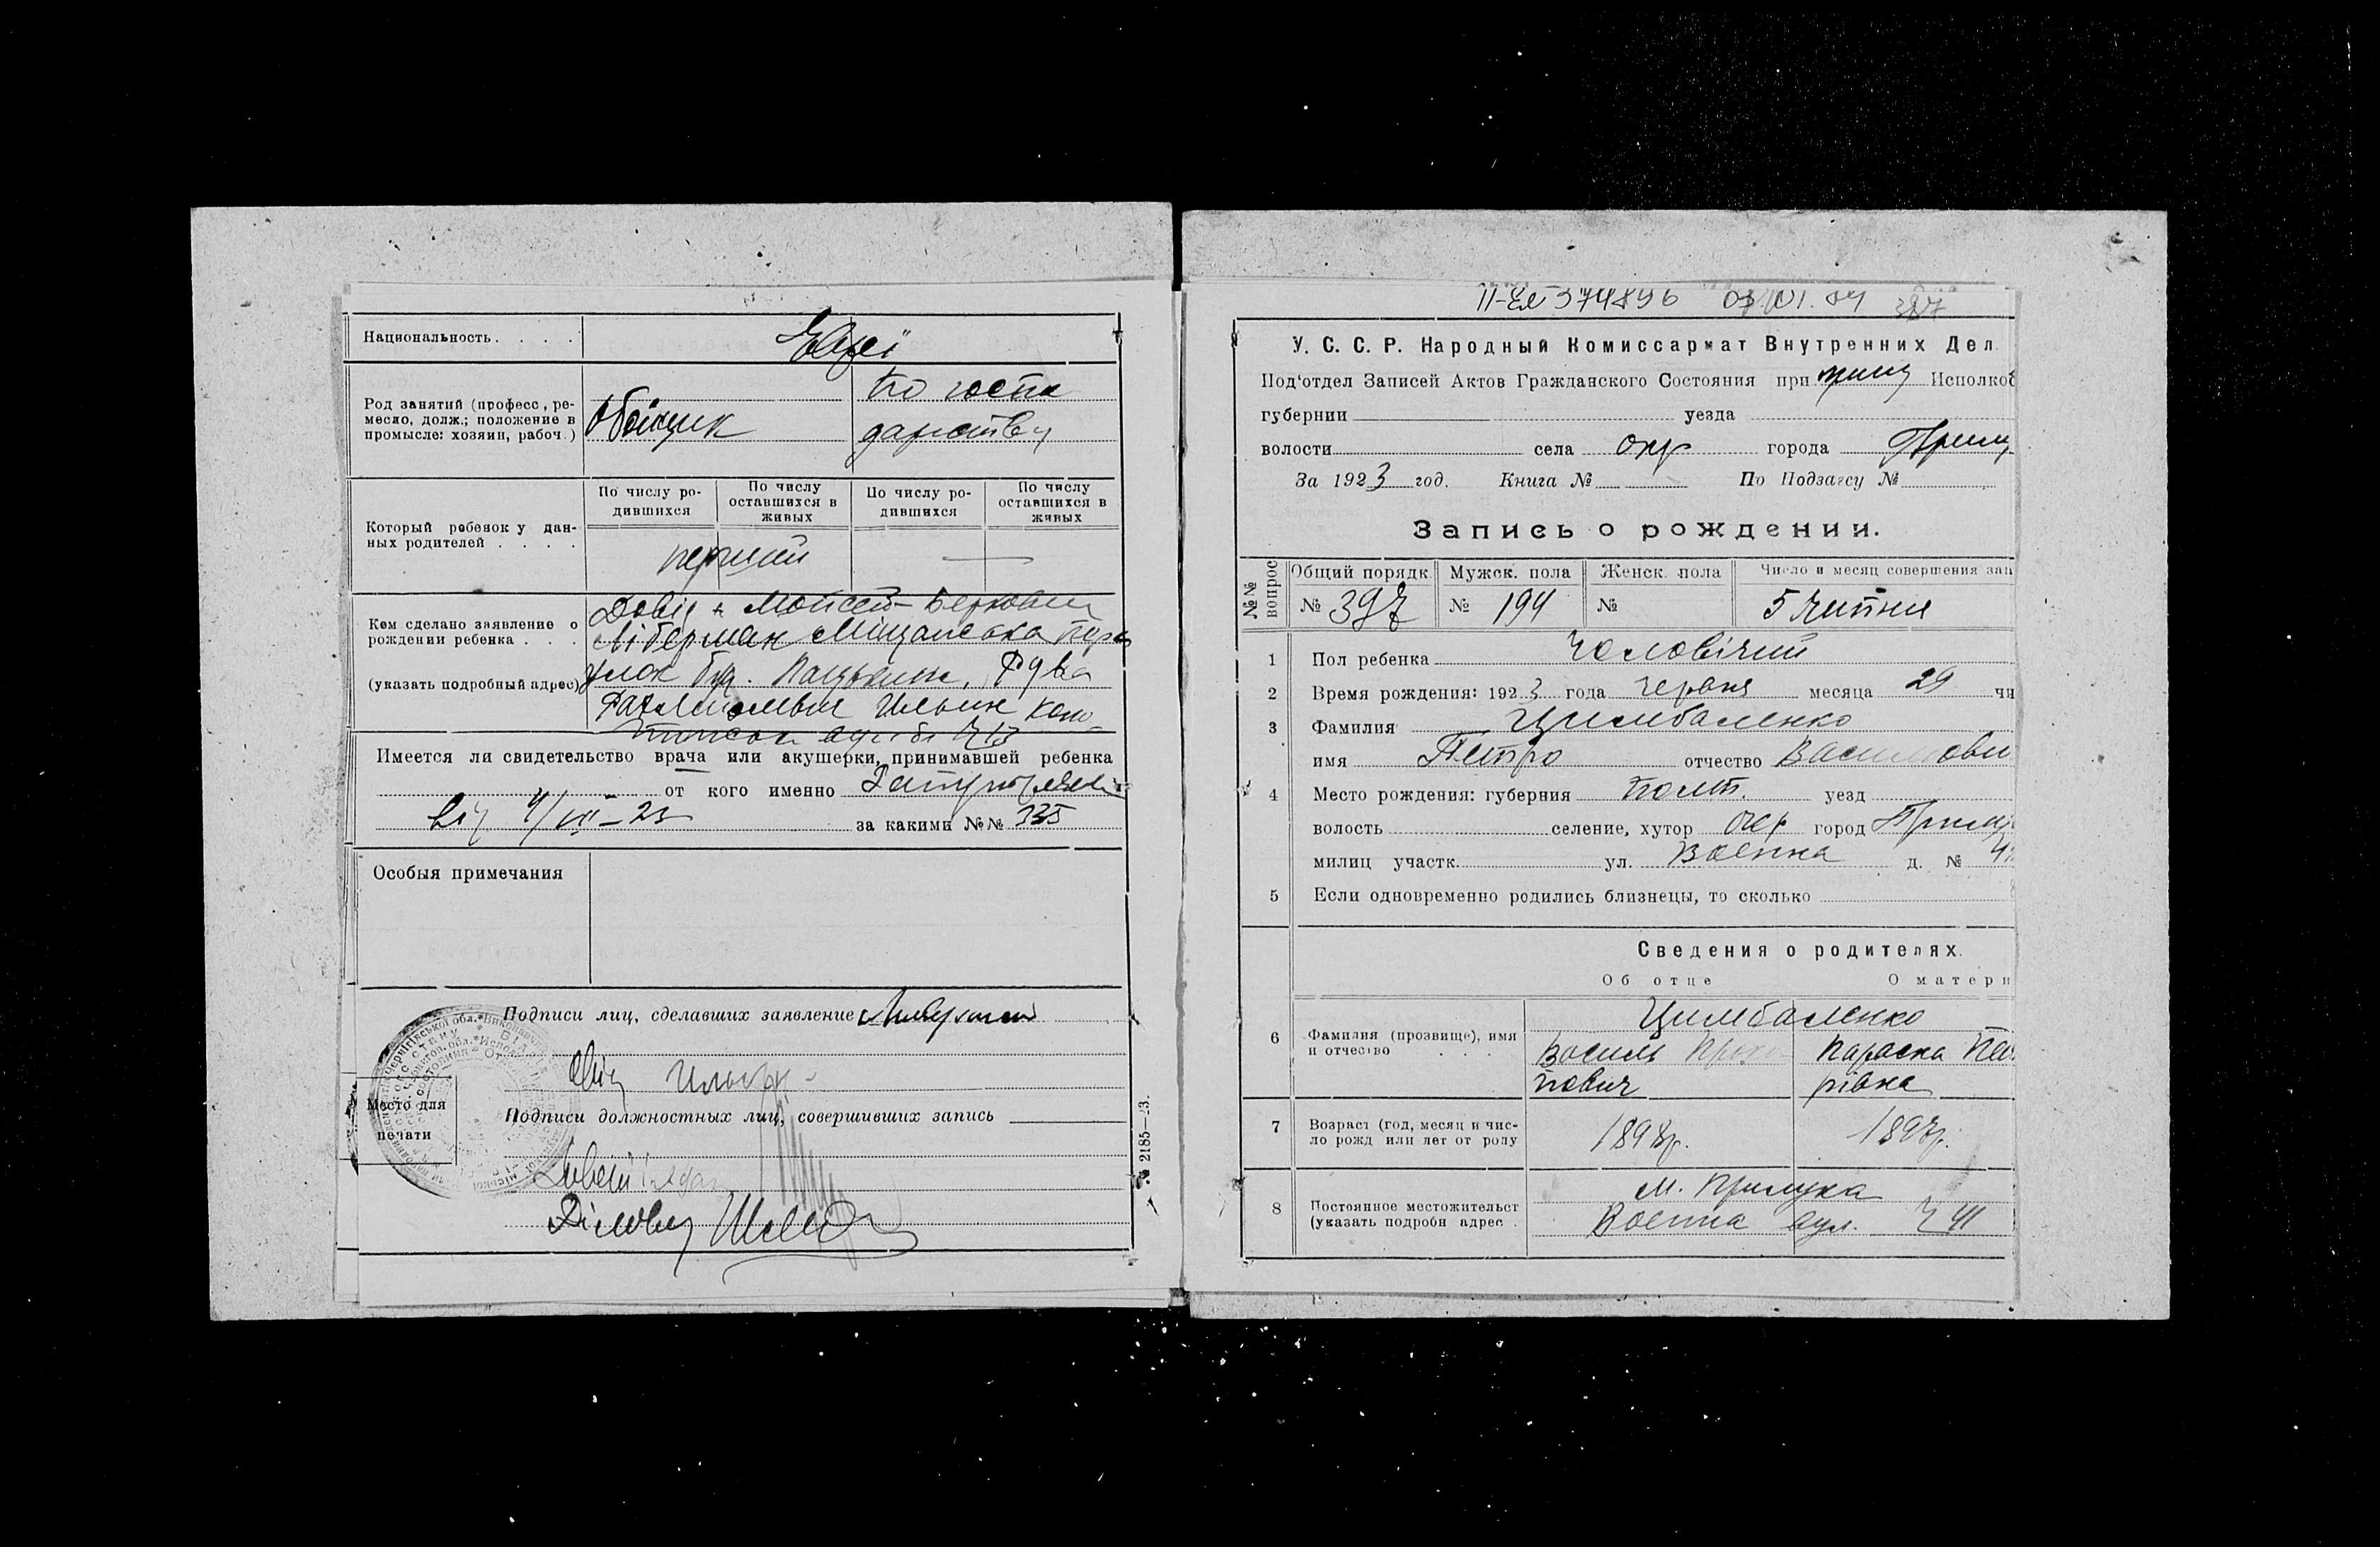 Национальность. . . . Евреї
Род занятий (професс, ре-
месло, долж.; положение в
промысле: хозяин, рабоч.)
Обойщик
по госпо
дарству
Который ребенок у дан-
ных родителей . . . .
По числу ро-
дившихся
По числу
оставшихся в
живых
По числу ро-
дившихся
По числу
оставшихся в
живых
перший —
Кем сделано заявление о
рождении ребенка . . .
(указать подробный адрес)
Довід Мойсей-Беркович
Ліберман Міщанська
улок буд. Рува
Ильин
Имеется ли свидетельство врача или акушерки, принимавшей ребенка
от кого именно
від 4/VII-23 за какими №№ 335
Особыя примечания
Подписи лиц, сделавших заявление
Ильин
Подписи должностных лиц, совершивших запись
Место для
печати
Діловод
№ 2185—23.
374896
387
У. С. С. Р. Народный Комиссармат Внутренних Дел
Под'отдел Записей Актов Гражданского Состояния при Прилу Исполкоб
губернии уезда
волости села окр города Прилу
За 1923 год. Книга № По Подзагсу №
Запись о рождении.
№№ вопрос
Общий порядк. Мужск. пола Женск. пола Число и месяц совершения зап
№ 397 № 194 № 5 липня
1 Пол ребенка Чоловічий
2 Время рождения: 1923 года червня месяца 29 чи
3 Фамилия Цимбаленко
имя Петро отчество Васильови
4 Место рождения: губерния Полт. уезд
волость селение, хутор окр город Прилу
милиц участк. ул. Воєнна д. № 41
5 Если одновременно родились близнецы, то сколько
Сведения о родителях.
Об отце О матери
6 Фамилия (прозвище), имя
и отчество . . . .
Цимбаленко
Василь Проко
пович
Параска Пе
рівна
7 Возраст (год, месяц и чис-
ло рожд или лет от роду
1898р. 1897р.
8 Постоянное местожительст
(указать подробн адрес .
м. Прилука
Воєнна вул. Ч 41